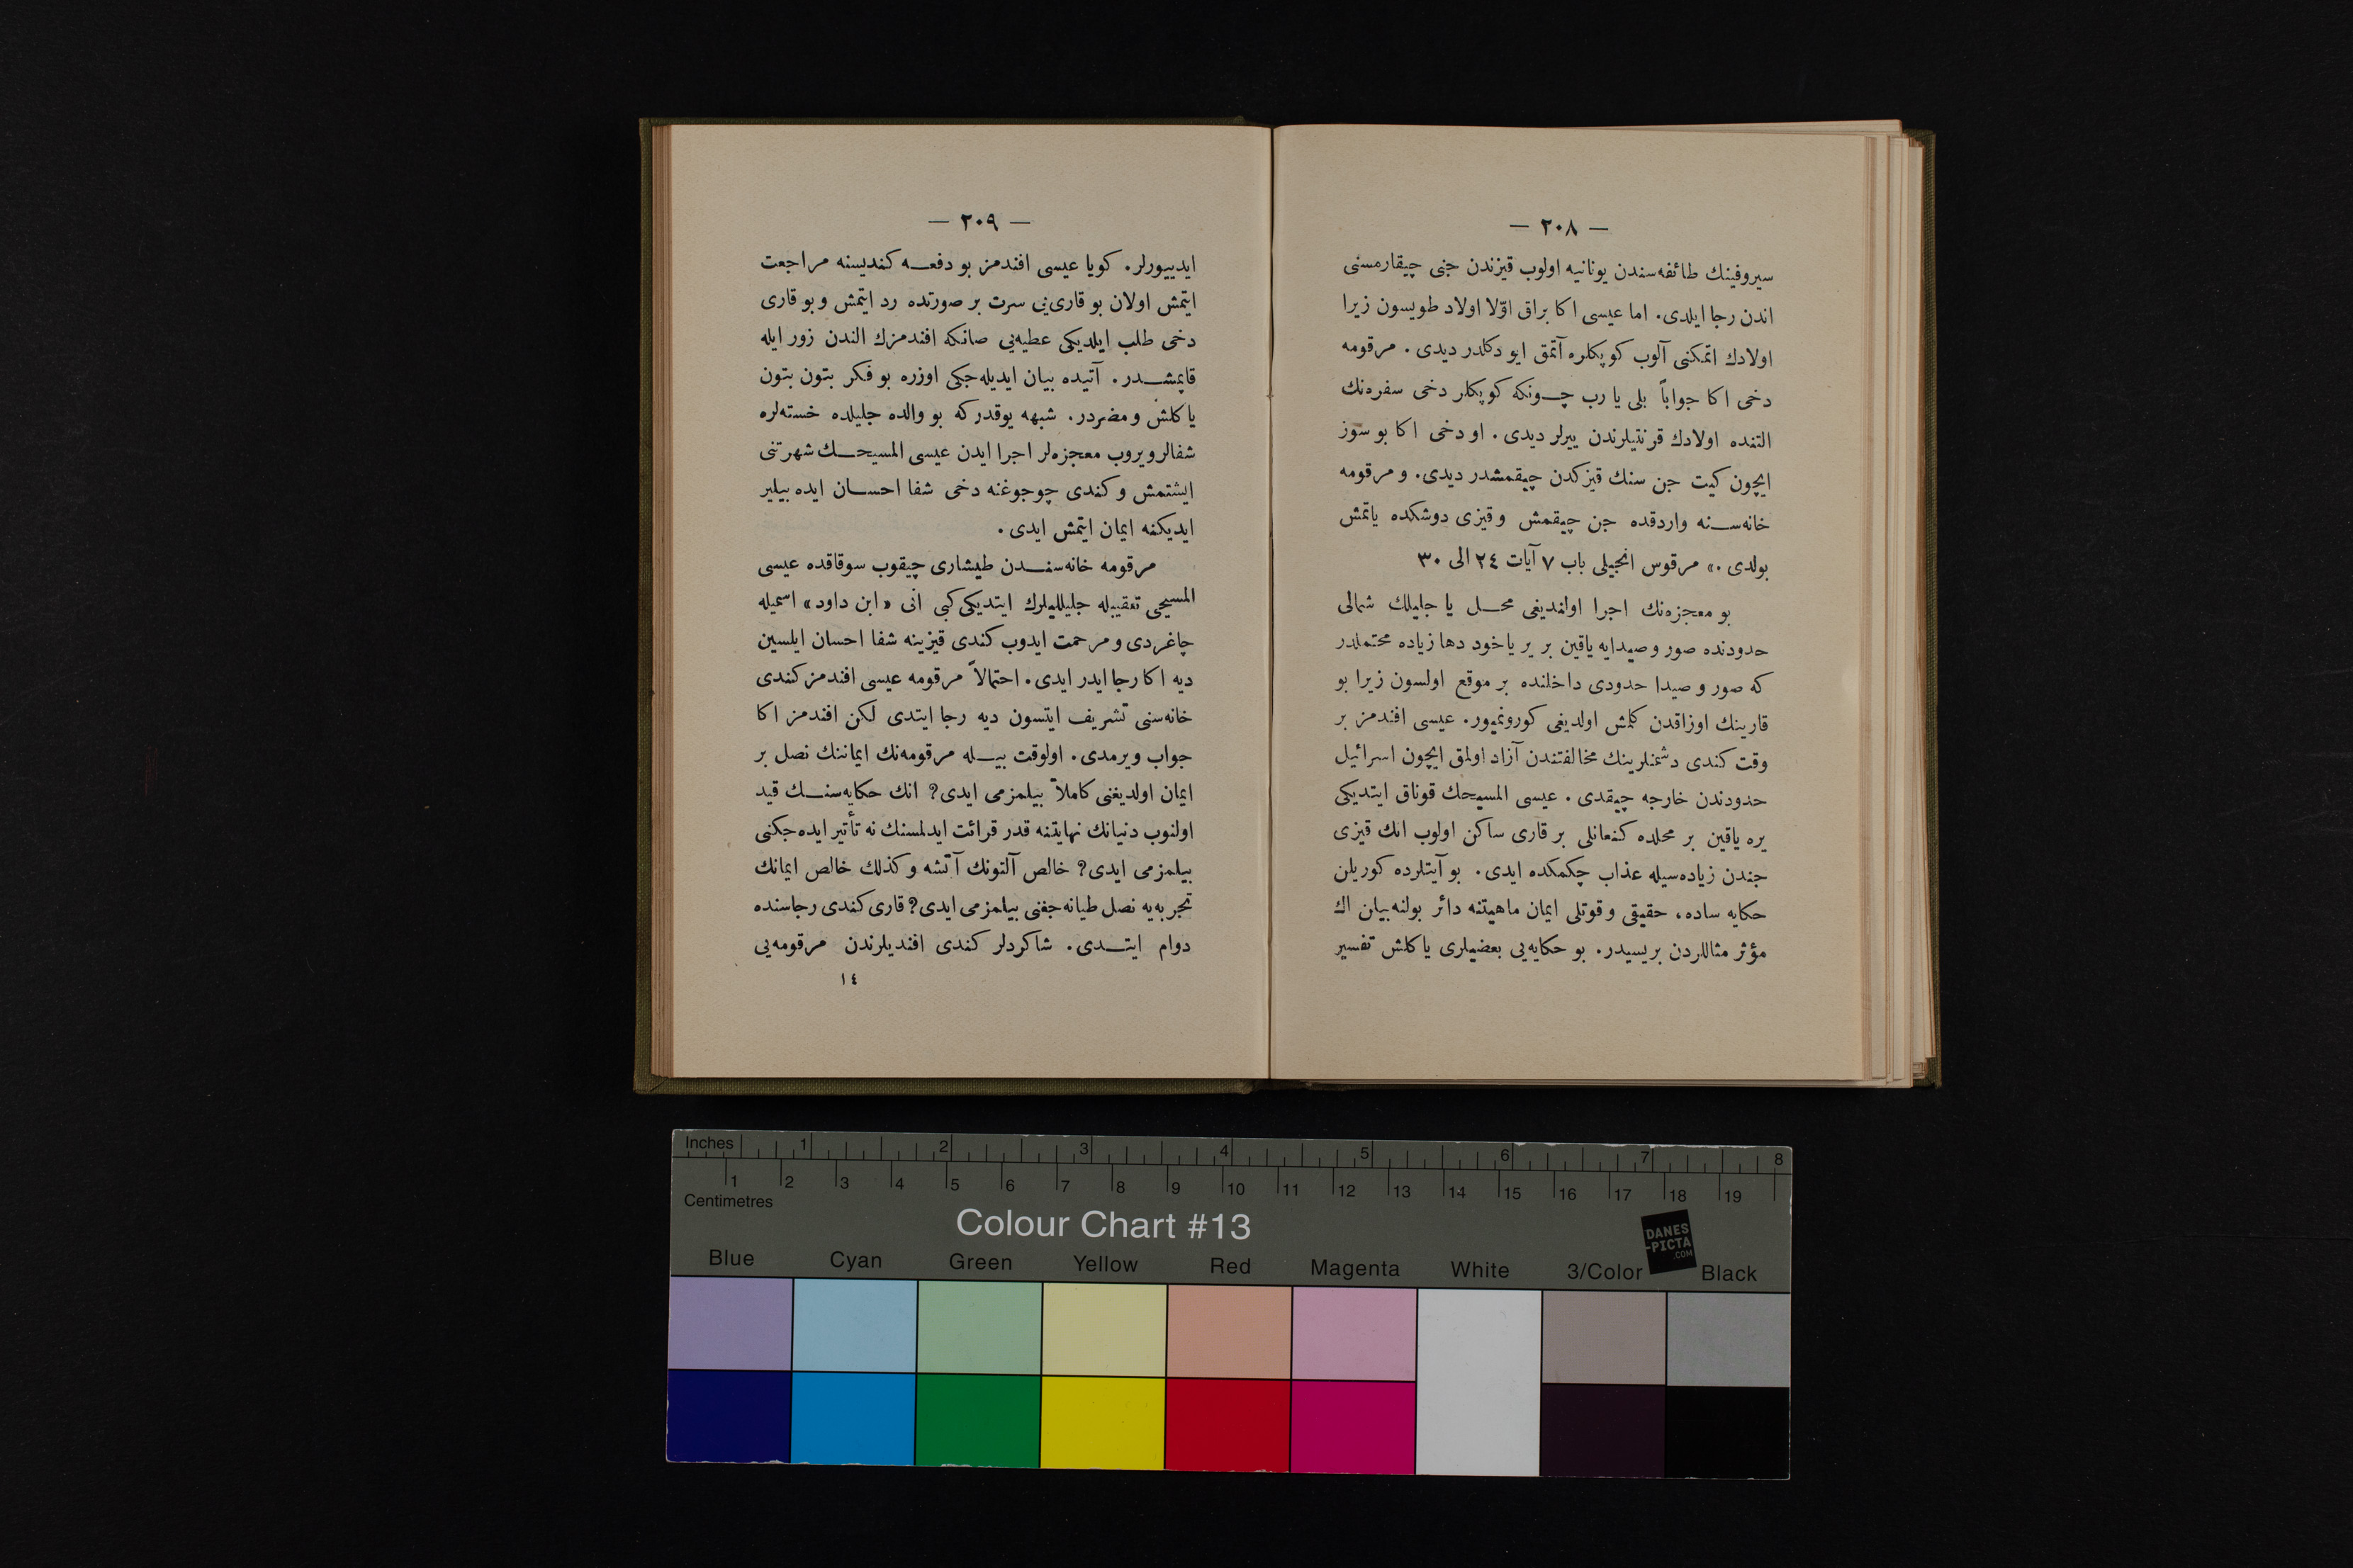 — ٢٠٨ —
سیروفینك طائفه‌سندن یونانیه اولوب قیزندن جنی چیقارمسنی
اندن رجا ایلدی. اما عیسی اكا براق اوّلا اولاد طویسون زیرا
اولادك اتمكنی آلوب كوپكلره آتمق ایو دكلدر دیدی. مرقومه
دخی اكا جواباً بلی یا رب چونكه كوپكلر دخی سفره‌نك
التنده اولادك قرنتیلرندن ییرلر دیدی. او دخی اكا بو سوز
ایچون كیت جن سنك قیزكدن چیقمشدر دیدی. و مرقومه
خانه‌سنه واردقده جن چیقمش و قیزی دوشكده یاتمش
بولدی.» مرقوس انجیلی باب ٧ آیات ٢٤ الی ٣٠
بو معجزه‌نك اجرا اولندیغی محل یا جلیلك شمالی
حدودنده صور و صیدایه یاقین بر یر یاخود دها زیاده محتملدر
كه صور و صیدا حدودی داخلنده بر موقع اولسون زیرا بو
قارینك اوزاقدن كلمش اولدیغی كورونمیور. عیسی افندمز بر
وقت كندی دشمنلرینك مخالفتندن آزاد اولمق ایچون اسرائیل
حدودندن خارجه چیقدی. عیسی المسیحك قوناق ایتدیكی
یره یاقین بر محلده كنعانلی بر قاری ساكن اولوب انك قیزی
جندن زیاده‌سیله عذاب چكمكده ایدی. بو آیتلرده كوریلن
حكایه ساده، حقیقی و قوتلی ایمان ماهیتنه دائر بولنه‌بیلن اك
مؤثر مثاللردن بریسیدر. بو حكایه‌یی بعضیلری یاكلش تفسیر
— ٢٠٩ —
ایدییورلر. كویا عیسی افندمز بو دفعه كندیسنه مراجعت
ایتمش اولان بو قاری‌یی سرت بر صورتده رد ایتمش و بو قاری
دخی طلب ایلدیكی عطیه‌یی صانكه افندمزك الندن زور ایله
قاپمشدر. آتیده بیان ایدیله‌جكی اوزره بو فكر بتون بتون
یاكلش و مضردر. شبهه یوقدركه بو والده جلیلده خسته‌لره
شفالر ویروب معجزه‌لر اجرا ایدن عیسی المسیحك شهرتنی
ایشتمش و كندی چوجوغنه دخی شفا احسان ایده بیلیر
ایدیكنه ایمان ایتمش ایدی.
مرقومه خانه‌سندن طیشاری چیقوب سوقاقده عیسی
المسیحی تعقیبله جلیللیلرك ایتدیكی كبی انی «ابن داود» اسمیله
چاغردی و مرحمت ایدوب كندی قیزینه شفا احسان ایلسین
دیه اكا رجا ایدر ایدی. احتمالاً مرقومه عیسی افندمز كندی
خانه‌سنی تشریف ایتسون دیه رجا ایتدی لكن افندمز اكا
جواب ویرمدی. اولوقت بیله مرقومه‌نك ایماننك نصل بر
ایمان اولدیغنی كاملاً بیلمزمی ایدی؟ انك حكایه‌سنك قید
اولنوب دنیانك نهایتنه قدر قرائت ایدلمسنك نه تأثیر ایده‌جكنی
بیلمزمی ایدی؟ خالص آلتونك آتشه و كذلك خالص ایمانك
تجربه‌یه نصل طیانه‌جغنی بیلمزمی ایدی؟ قاری كندی رجاسنده
دوام ایتدی. شاكردلر كندی افندیلرندن مرقومه‌یی
١٤
Inches 1 2 3 4 5 6 7 8
1 2 3 4 5 6 7 8 9 10 11 12 13 14 15 16 17 18 19
Centimetres
Colour Chart #13
DANES
-PICTA
.COM
Blue Cyan Green Yellow Red Magenta White 3/Color Black